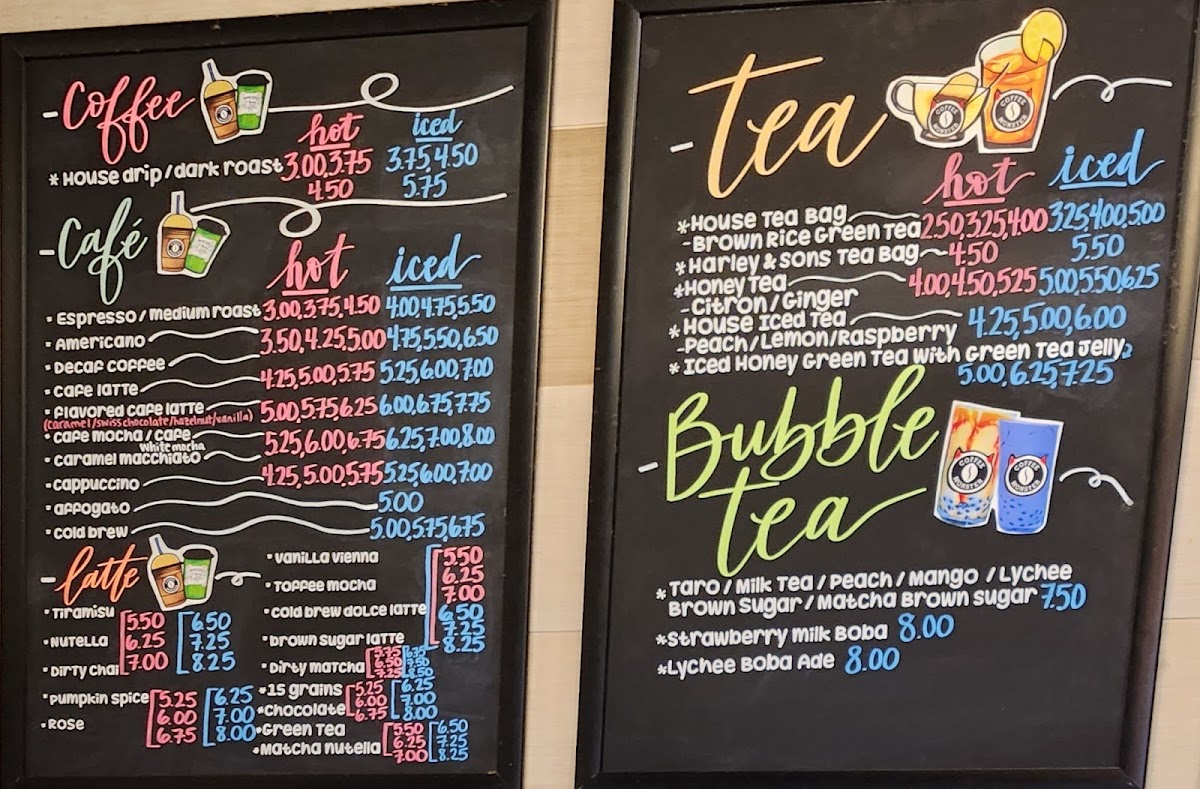 Coffee
hot iced
* House drip / dark roast 3.00, 3.75 3.75, 4.50
4.50 5.75
Café
hot iced
· Espresso / medium roast 3.00, 3.75, 4.50 4.00, 4.75, 5.50
· Americano
3.50, 4.25, 5.00 4.75, 5.50, 6.50
· Decaf coffee
· cafe latte 4.25, 5.00, 5.75 5.25, 6.00, 7.00
· flavored cafe latte 5.00, 5.75, 6.25 6.00, 6.75, 7.75
(caramel/swiss chocolate/hazelnut/vanilla)
· cafe mocha / cafe white mocha 5.25, 6.00, 6.75 6.25, 7.00, 8.00
· caramel macchiato
· cappuccino 4.25, 5.00, 5.75 5.25, 6.00, 7.00
· affogato 5.00
· cold brew 5.00, 5.75, 6.75
latte
· Tiramisu
· Nutella
· Dirty chai
5.50 6.50
6.25 7.25
7.00 8.25
· Pumpkin spice
· Rose
5.25 6.25
6.00 7.00
6.75 8.00
· vanilla vienna
· Toffee mocha
· cold brew dolce latte
· brown sugar latte
5.50
6.25
7.00
6.50
7.25
8.25
· Dirty matcha
5.75 6.75
6.50 7.50
7.25 8.50
· 15 grains
· chocolate
5.25 6.25
6.00 7.00
6.75 8.00
· Green Tea
· Matcha nutella
5.50 6.50
6.25 7.25
7.00 8.25
Tea
COFFEE MONSTER
COFFEE MONSTER
hot iced
* House Tea Bag
- Brown Rice Green Tea 2.50, 3.25, 4.00 3.25, 4.00, 5.00
* Harley & sons Tea Bag 4.50 5.50
* Honey Tea 4.00, 4.50, 5.25 5.00, 5.50, 6.25
- Citron / Ginger
* House Iced Tea 4.25, 5.00, 6.00
- Peach/Lemon/Raspberry
* Iced Honey Green Tea with Green Tea Jelly
5.00, 6.25, 7.25
Bubble
tea
COFFEE MONSTER
COFFEE MONSTER
* Taro / Milk Tea / Peach / Mango / Lychee
Brown Sugar / Matcha Brown sugar 7.50
* Strawberry Milk Boba 8.00
* Lychee Boba Ade 8.00